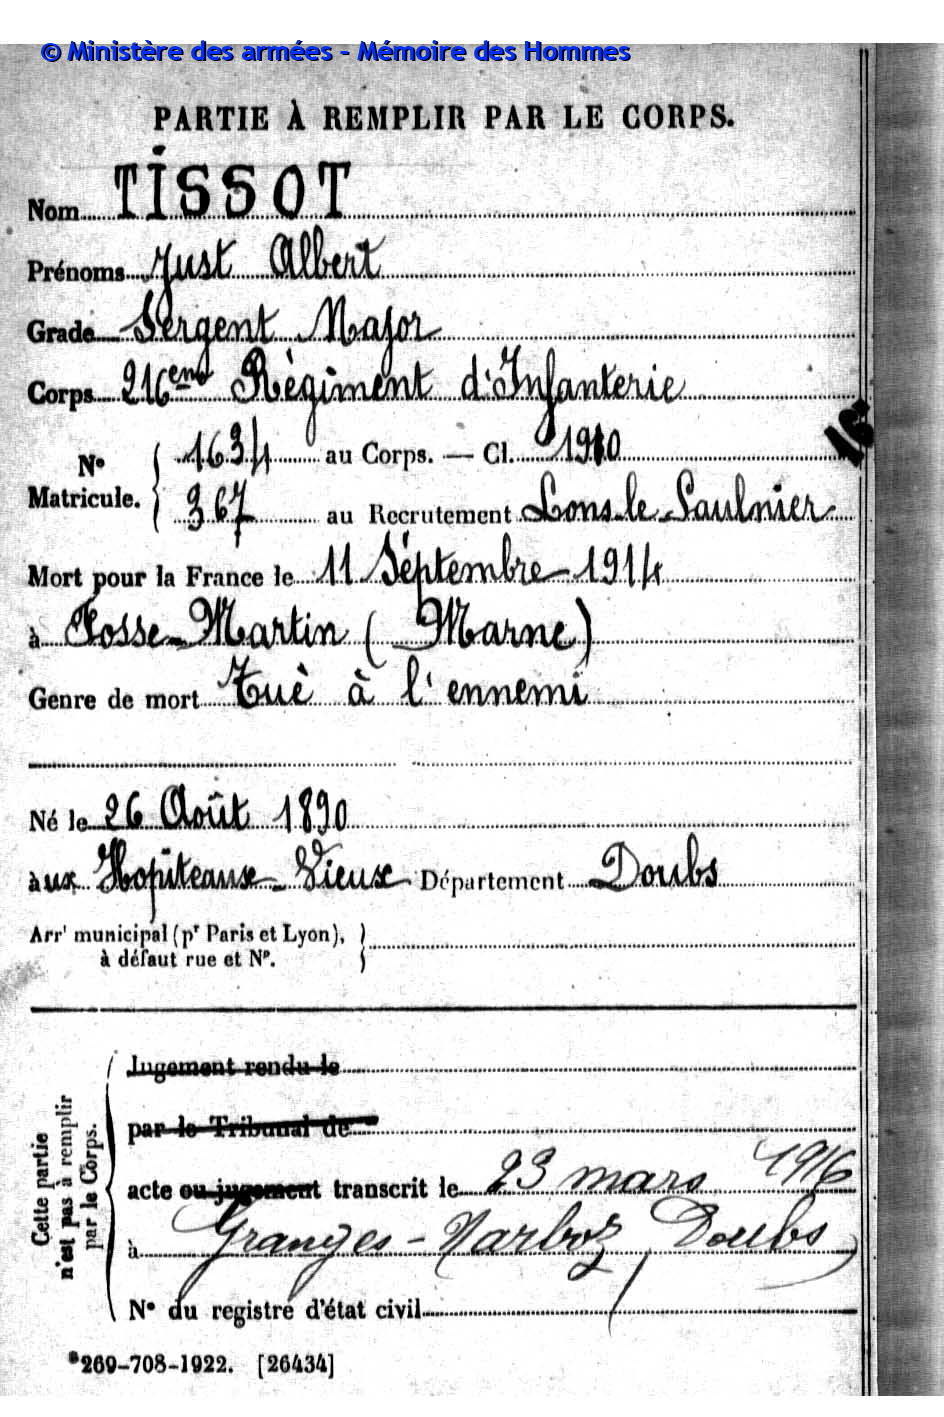 © Ministère des armées - Mémoire des Hommes
PARTIE À REMPLIR PAR LE CORPS.
Nom TISSOT
Prénoms Just Albert
Grade Sergent Major
Corps 216eme Règiment d'Infanterie
N° Matricule. 1634 au Corps. — Cl. 1910
367 au Recrutement Lons-le-Saulnier
Mort pour la France le 11 Septembre 1914
à Fosse-Martin (Marne)
Genre de mort Tuè à l'ennemi
Né le 26 Août 1890
àux Hopiteaux-Vieux Département Doubs
Arrt municipal (pr Paris et Lyon),
à défaut rue et N°.
Cette partie
n'est pas à remplir
par le Corps.
Jugement rendu le
par le Tribunal de
acte ou jugement transcrit le 23 mars 1916
à Granges-Narboz, Doubs
N° du registre d'état civil
269-708-1922. [26434]